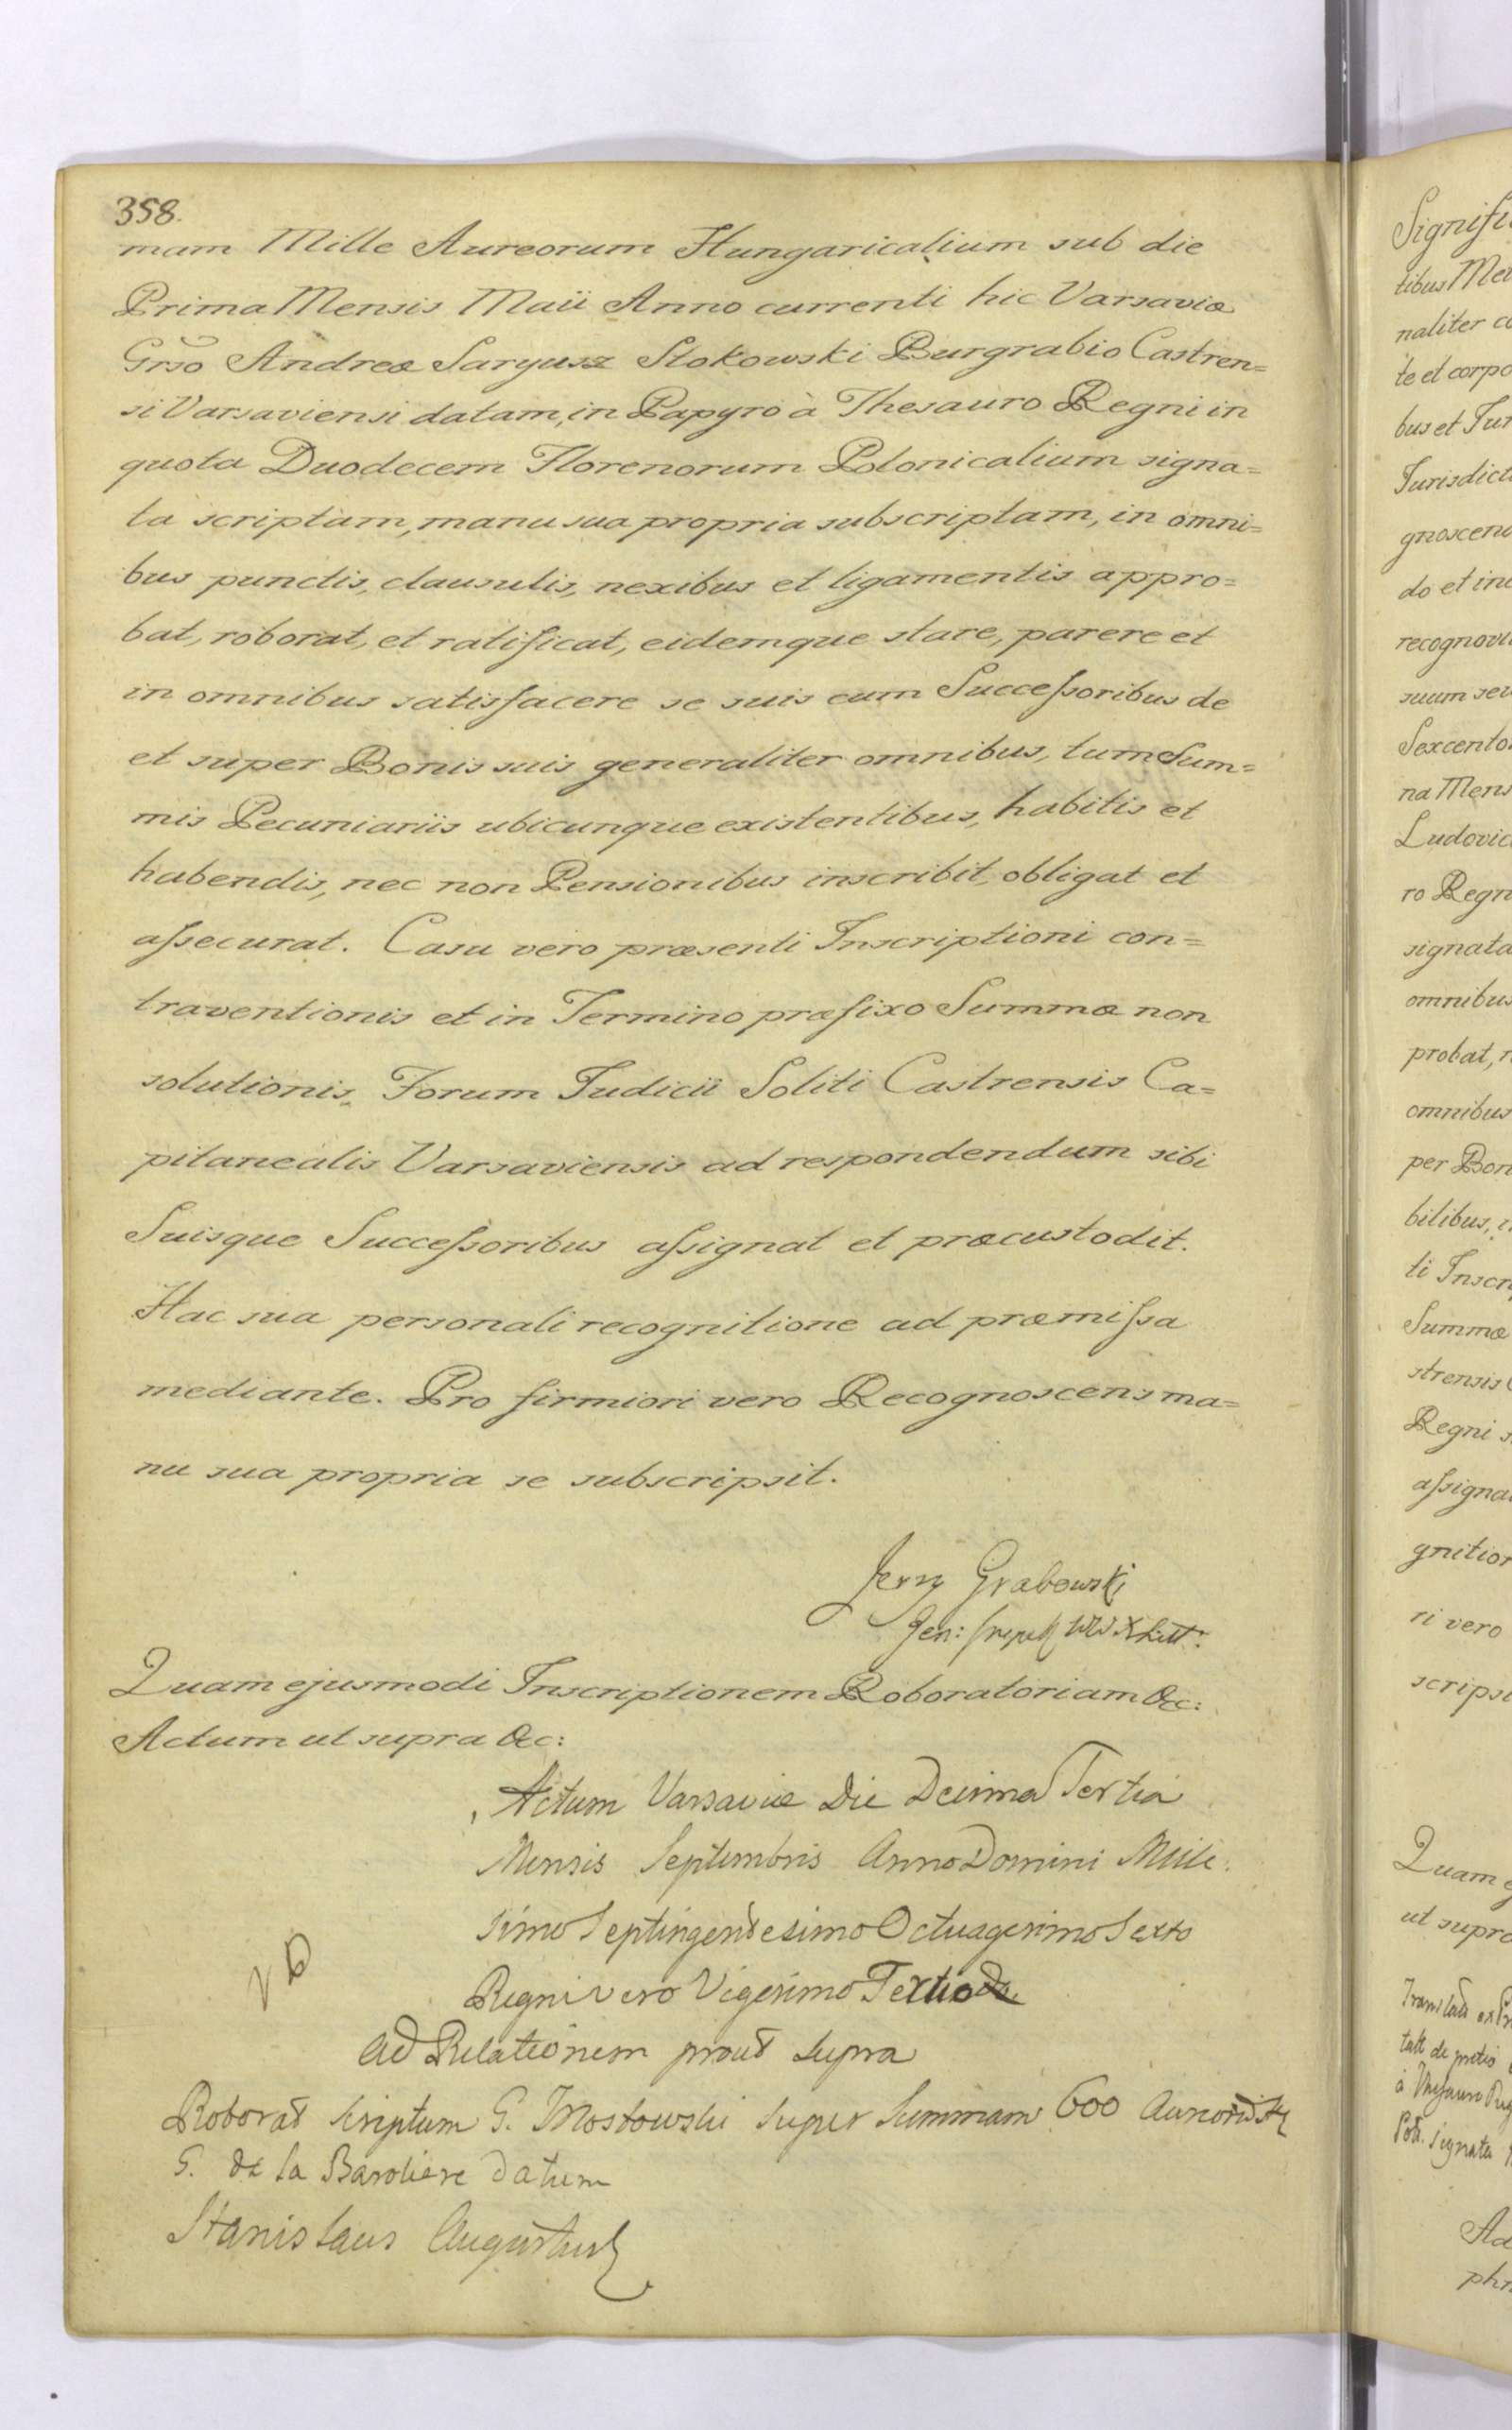 358.
mam Mille Aureorum Hungaricalium sub die
Prima Mensis Maii Anno currenti hic Varsaviæ
Grso Andreæ Saryusz Stokowski Burgrabio Castren=
si Varsaviensi datam, in Papyro à Thesauro Regni in
quota Duodecem Florenorum Polonicalium signa=
ta scriptam, manu sua propria subscriptam, in omni=
bus punctis, clausulis, nexibus et ligamentis appro=
bat, roborat, et ratificat, eidemque stare, parere et
in omnibus satisfacere se suis cum Successoribus de
et super Bonis suis generaliter omnibus, tum Sum=
mis Pecuniariis ubicunque existentibus, habitis et
habendis, nec non Pensionibus inscribit, obligat et
assecurat. Casu vero præsenti Inscriptioni con=
traventionis et in Termino præfixo Summæ non
solutionis, Forum Judicii Soliti Castrensis Ca=
pitanealis Varsaviensis ad respondendum sibi
Suisque Successoribus assignat et præcustodit.
Hac sua personali recognitione ad præmissa
mediante. Pro firmiori vero Recognoscens ma=
nu sua propria se subscripsit.
Jerzy Grabowski
Gen:
Quam ejusmodi Inscriptionem Roboratoriam &c:
Actum ut supra &c:
Actum Varsaviæ Die Decima Tertia
Mensis Septembris Anno Domini Mille
simo Septingentesimo Octuagesimo Sexto
Regni vero Vigesimo Tertio
Ad Relationem prout supra
Roborat scriptum G. Mostowski super Summam 600
G. de la Baroliere datum
Stanislaus Augustus
Signifi
tibus
naliter
te et corpo
bus et Jur
Jurisdict
gnoscen
do et in
recogno
suum se
Sexcento
na Mens
Ludovic
ro Regn
signata
omnibus
probat,
omnibus
per Bon
bilibus,
ti Inscr
Summæ
strensis
Regni
assigna
gnition
ri vero
scripsi
Quam e
ut supra
de pretio
à
signata
Ad